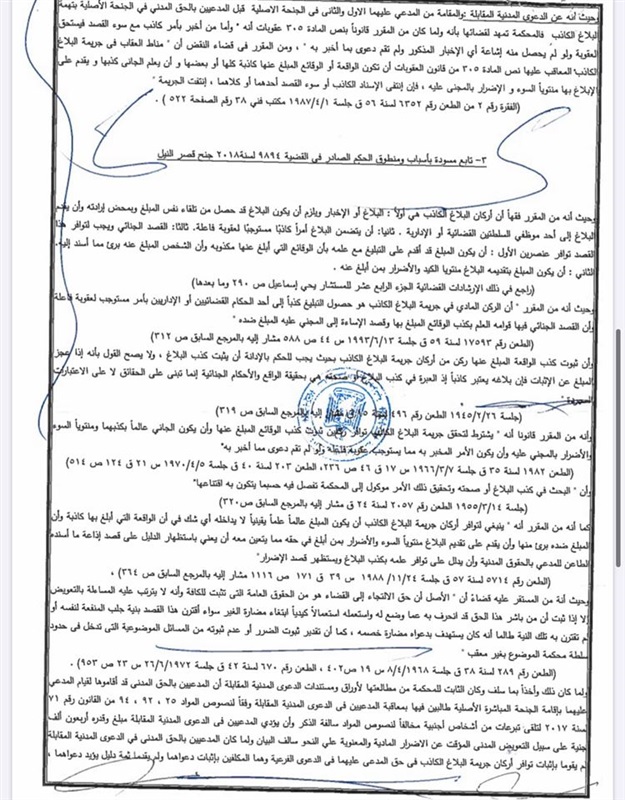 وحيث أنه عن الدعوى المدنية المقابلة :والمقامة من المدعي عليهما الأول والثانى فى الجنحة الاصلية قبل المدعيين بالحق المدني في الجنحة الأصلية بتهمة
البلاغ الكاذب فالمحكمة تمهد لقضائها بأنه ولما كان من المقرر قانوناً بنص المادة ٣٠٥ عقوبات أنه " وأما من أخبر بأمر كاذب مع سوء القصد فيستحق
العقوبة ولو لم يحصل منه إشاعة أي الإخبار المذكور ولم تقم دعوى بما أخبر به " ، ومن المقرر في قضاء النقض أن " مناط العقاب فى جريمة البلاغ
الكاذب المعاقب عليها نص المادة ٣٠٥ من قانون العقوبات أن تكون الواقعة أو الوقائع المبلغ عنها كاذبة كلها أو بعضها و أن يعلم الجاني كذبها و يقدم على
الإبلاغ بها منتوياً السوء و الإضرار بالمجنى عليه ، فإن إنتفى الإسناد الكاذب أو سوء القصد أحدهما أو كلاهما ، إنتفت الجريمة "
(الفقرة رقم ٢ من الطعن رقم ٦٣٥٢ لسنة ٥٦ ق جلسة ١٩٨٧/٤/١ مكتب فني ٣٨ رقم الصفحة ٥٢٢ ) .
٣- تابع مسودة بأسباب ومنطوق الحكم الصادر فى القضية ٩٨٩٤ لسنة٢٠١٨ جنح قصر النيل
وحيث أنه من المقرر فقهاً أن أركان البلاغ الكاذب هي أولاً : البلاغ أو الإخبار ويلزم أن يكون البلاغ قد حصل من تلقاء نفس المبلغ وبمحض إرادته وأن يقدم
البلاغ إلى أحد موظفي السلطتين القضائية أو الإدارية . ثانيا: أن يتضمن البلاغ أمراً كاذباً مستوجباً لعقوبة فاعلة. ثالثا: القصد الجنائي ويجب لتوافر هذا
القصد توافر عنصرين الأول : أن يكون المبلغ قد أقدم على التبليغ مع علمه بأن الوقائع التي أبلغ عنها مكذوبه وأن الشخص المبلغ عنه برئ مما أسند إليه.
الثاني : أن يكون المبلغ بتقديمه البلاغ منتويا الكيد والأضرار بمن أبلغ عنه .
(راجع في ذلك الإرشادات القضائية الجزء الرابع عشر للمستشار يحي إسماعيل ص ٢٩٠ وما بعدها)
وحيث أنه من المقرر " أن الركن المادي في جريمة البلاغ الكاذب هو حصول التبليغ كذباً إلى أحد الحكام القضائيين أو الإداريين بأمر مستوجب لعقوبة فاعلة
وأن القصد الجنائي فيها قوامه العلم بكذب الوقائع المبلغ بها وقصد الإساءة إلى المجني عليه المبلغ ضده "
(الطعن رقم ١٧٥٩٣ لسنة ٥٩ ق جلسة ١٩٩٣/٦/١٣ س ٤٤ ص ٥٨٨ مشار إليه بالمرجع السابق ص ٣١٢)
وأن ثبوت كذب الواقعة المبلغ عنها ركن من أركان جريمة البلاغ الكاذب بحيث يجب للحكم بالإدانة أن يثبت كذب البلاغ ، ولا يصح القول بأنه إذا عجز
المبلغ عن الإثبات فإن بلاغه يعتبر كاذباً إذ العبرة في كذب البلاغ أو صحته هي بحقيقة الواقع والأحكام الجنائية إنما تبنى على الحقائق لا على الاعتبارات
المجردة "
(جلسة ١٩٤٥/٢/٢٦ الطعن رقم ٤٩٦ لسنة ١٥ ق مشار إليه بالمرجع السابق ص ٣١٩)
وأنه من المقرر قانونا أنه " يشترط لتحقق جريمة البلاغ الكاذب توافر ركنين ثبوت كذب الوقائع المبلغ عنها وأن يكون الجاني عالماً بكذبها ومنتوياً السوء
والأضرار بالمجني عليه وأن يكون الأمر المخبر به مما يستوجب عقوبة فاعله ولو لم تقم دعوى مما أخبر به"
(الطعن ١٩٨٢ لسنة ٣٥ ق جلسة ١٩٦٦/٣/٧ س ١٧ ق ٤٦ ص ٢٣٦، الطعن ٢٠٣ لسنة ٤٠ ق جلسة ١٩٧٠/٤/٥ س ٢١ ق ١٢٤ ص ٥١٤)
وأن "البحث في كذب البلاغ أو صحته وتحقيق ذلك الأمر موكول إلى المحكمة تفصل فيه حسبما يتكون به اقتناعها"
(جلسة ١٩٥٥/٣/١٤ الطعن رقم ٢٠٥٧ لسنة ٢٤ ق مشار إليه بالمرجع السابق ص٣٢٠)
كما أنه من المقرر أنه " ينبغي لتوافر أركان جريمة البلاغ الكاذب أن يكون المبلغ عالماً علماً يقينياً لا يداخله أي شك في أن الواقعة التي أبلغ بها كاذبة وأن
المبلغ ضده برئ منها وأن يقدم على تقديم البلاغ منتوياً السوء والأضرار بمن أبلغ في حقه مما يتعين معه أن يعني باستظهار الدليل على قصد إذاعة ما أسنده
الطاعن للمدعي بالحقوق المدنية وأن يدلل على توافر علمه بكذب البلاغ ويستظهر قصد الإضرار"
(الطعن رقم ٥٧١٤ لسنة ٥٧ ق جلسة ١١/٢٤/ ١٩٨٨ س ٣٩ ق ١٧١ ص ١١١٦ مشار إليه بالمرجع السابق ص ٣٦٤) ،
وحيث أنه من المستقر عليه قضاءً أن " الأصل أن حق الالتجاء إلى القضاء هو من الحقوق العامة التي تثبت للكافة وأنه لا يترتب عليه المساءلة بالتعويض
إلا إذا ثبت أن من باشر هذا الحق قد انحرف به عما وضع له واستعمله استعمالاً كيدياً ابتغاء مضارة الغير سواء أقترن هذا القصد بنية جلب المنفعة لنفسه أو
لم تقترن به تلك النية طالما أنه كان يستهدف بدعواه مضارة خصمه ، كما أن تقدير ثبوت الضرر أو عدم ثبوته من المسائل الموضوعية التى تدخل فى حدود
سلطة محكمة الموضوع بغير معقب "
(الطعن رقم ٢٨٩ لسنة ٣٨ ق جلسة ٨/٤/١٩٦٨ س ١٩ ص٤٠٢، الطعن رقم ٦٧٠ لسنة ٤٢ ق جلسة ٢٦/٦/١٩٧٢ س ٢٣ ص ٩٥٣) .
ولما كان ذلك وأخذاً بما سلف وكان الثابت للمحكمة من مطالعتها لأوراق ومستندات الدعوى المدنية المقابلة أن المدعيين بالحق المدني قد أقاموها لقيام المدعي
عليهما بإقامة الجنحة المباشرة الأصلية طالبين فيها بمعاقبة المدعيين فى الدعوى المدنية المقابلة وفقاً لنصوص المواد ٢٥ ، ٩٢ ، ٩٤ من القانون رقم ٧١
لسنة ٢٠١٧ لتلقى تبرعات من أشخاص أجنبية مخالفاً لنصوص المواد سالفة الذكر وأن يؤدي المدعيين فى الدعوى المدنية المقابلة مبلغ وقدره أربعون ألف
جنية على سبيل التعويض المدنى المؤقت عن الاضرار المادية والمعنوية علي النحو سالف البيان ولما كان المدعيين بالحق المدني في الدعوى المدنية المقابلة
لم يقوما بإثبات توافر أركان جريمة البلاغ الكاذب فى حق المدعى عليهما فى الدعوى الفرعية وهما المكلفين بإثبات دعواهما ولم يقدما ثمة دليل يؤيد دعواهما ،